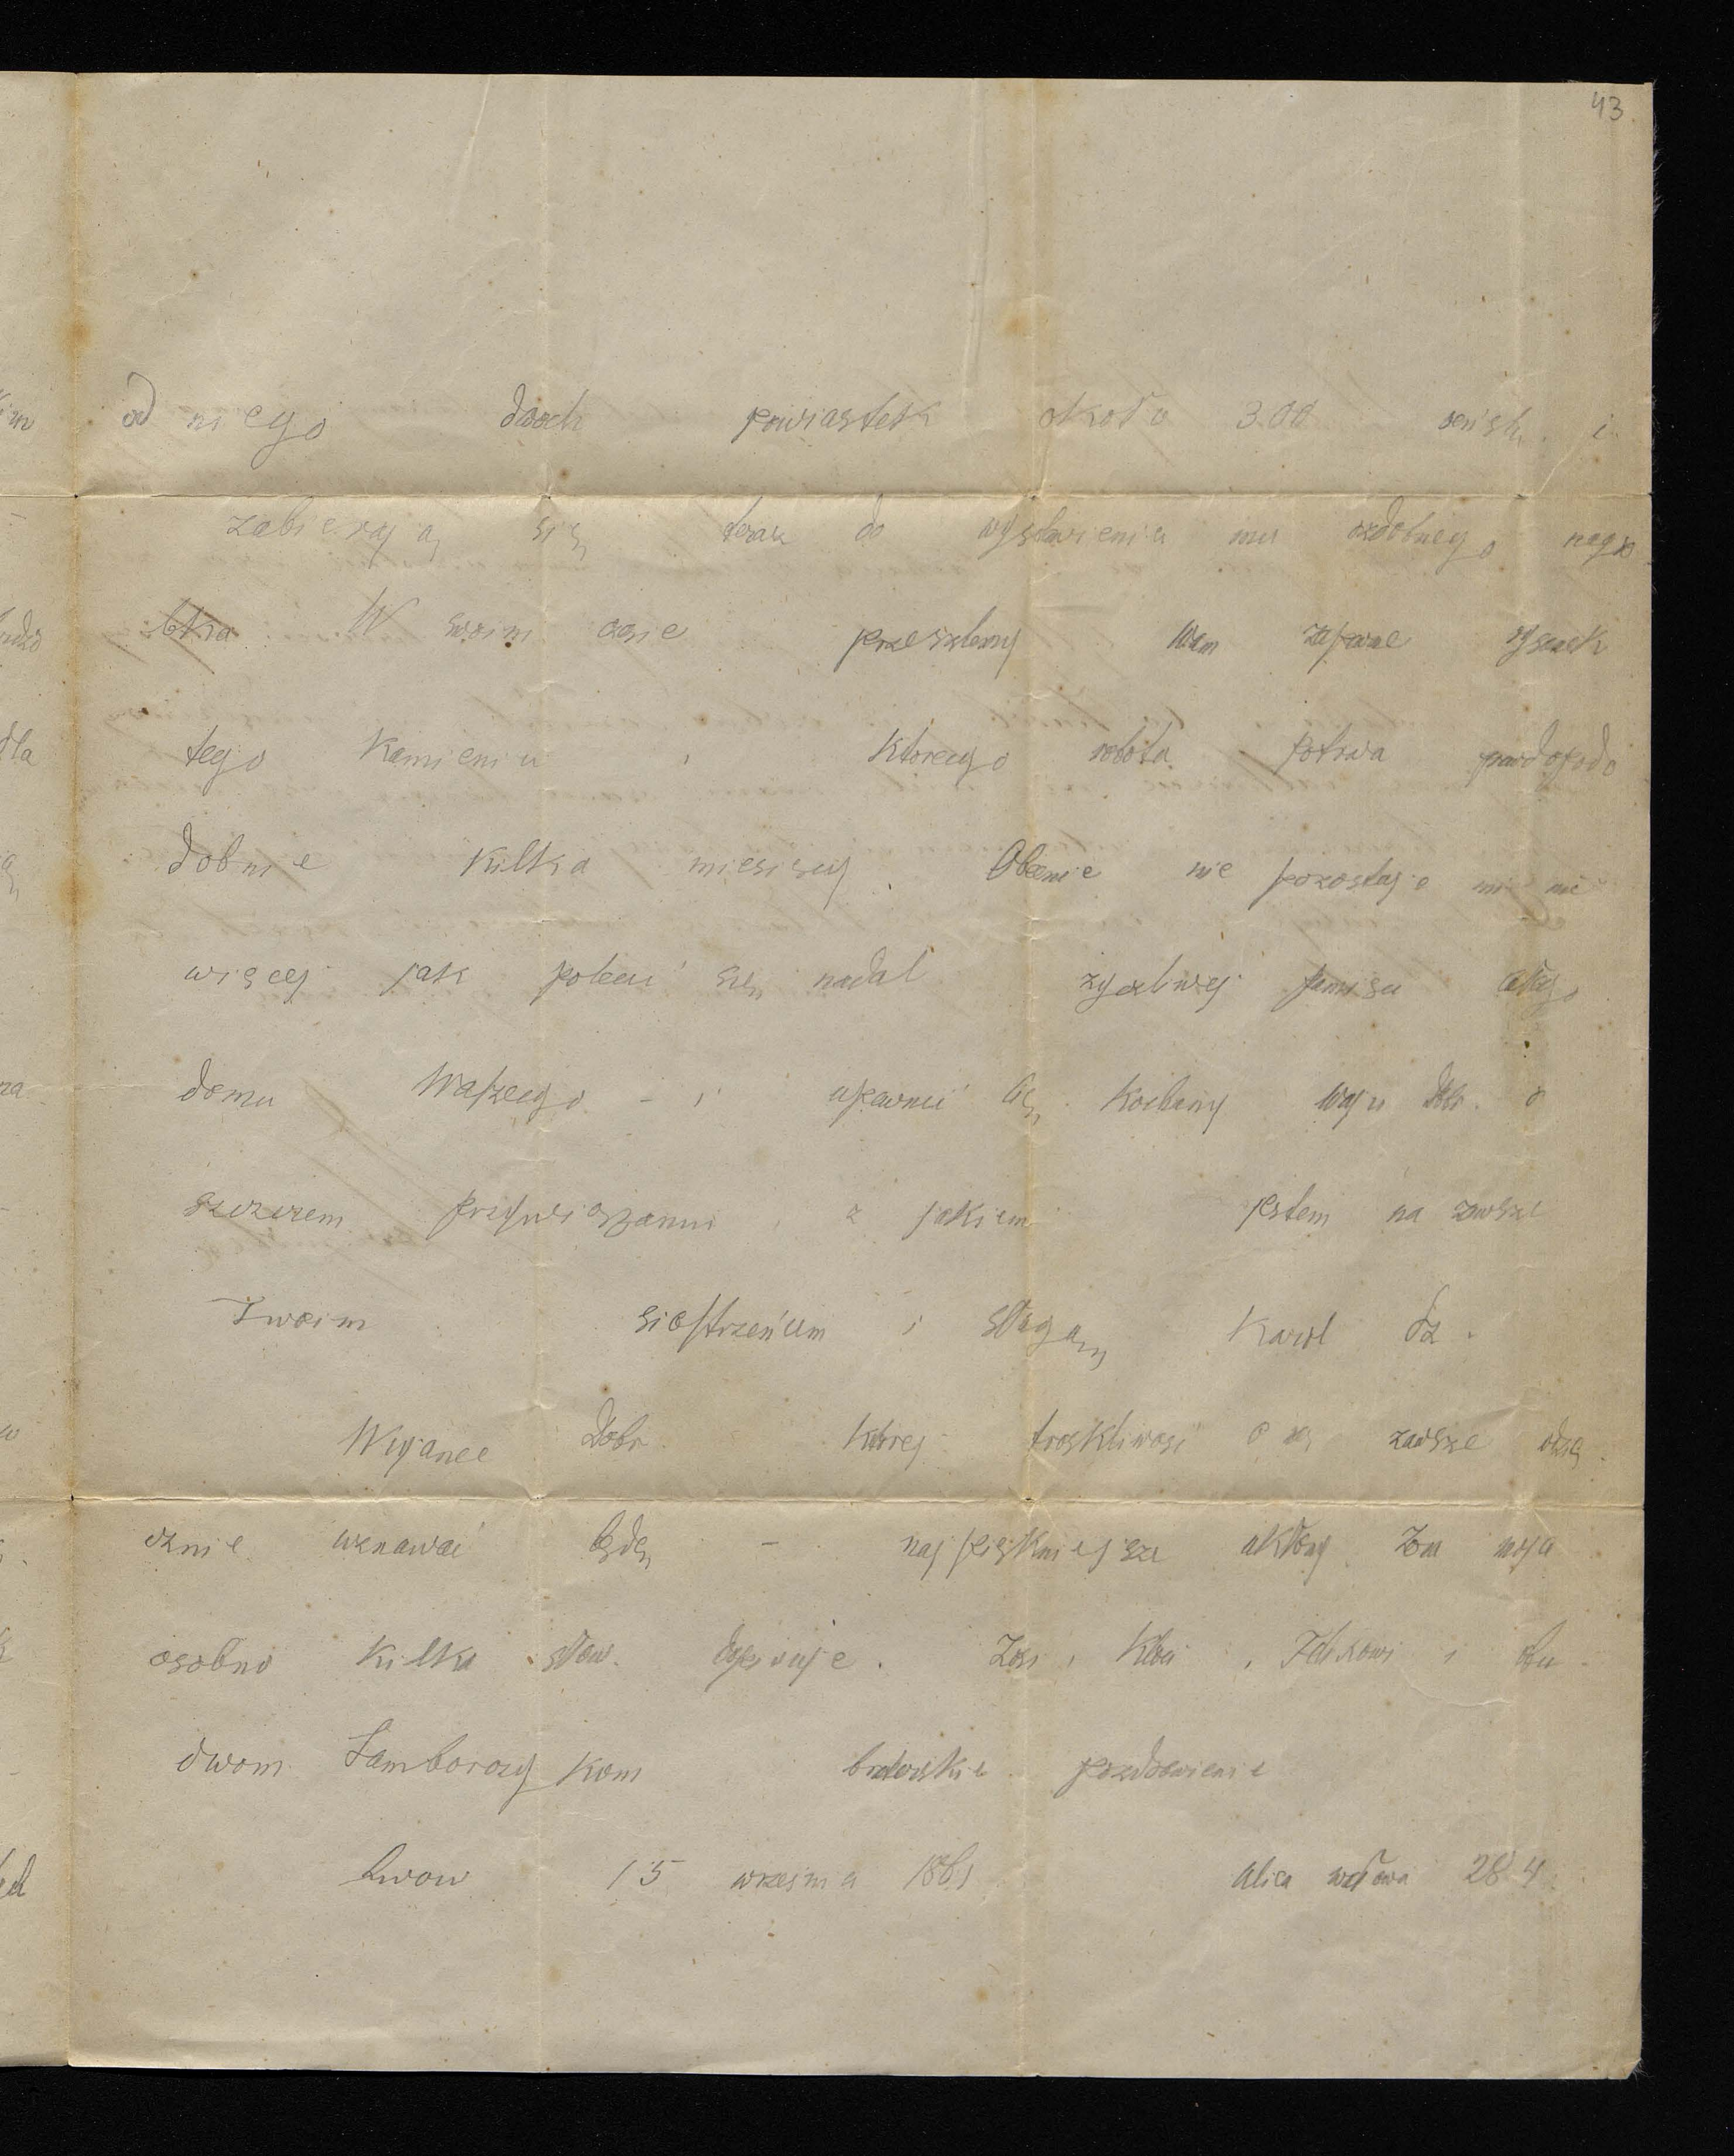 43
od niego dwoch powiastek około 300 reńsk. i
zabierają się teraz do wystawienia mu ozdobnego nagro
bka. W swoim czasie przeszlemy Wam zapewne rysunek
tego Kamienia, Ktorego robota potrwa prawdopodo
dobnie Kilka miesięcy. Obecnie nie pozostaje mi nic
więcej jak polecić się nadal życzliwej pamięci całego
domu Waszego – i upewnić Cię Kochany Wuju Dobr. o
szczerem przywiązaniu, z jakiem jestem na zawsze
Twoim siostrzeńcem i sługą Karol Sz.
Wujance Dobr. Ktorej troskliwość o nas zawsze wdzię
cznie uznawać będę – najpiękniejsze ukłony. Żona moja
osobno Kilka słow dopisuje. Zosi, Kloci, Zdzisiowi i
dwom Samborczykom braterskie pozdrowienie
Lwow 15 września 1861 Ulica wałowa 284.